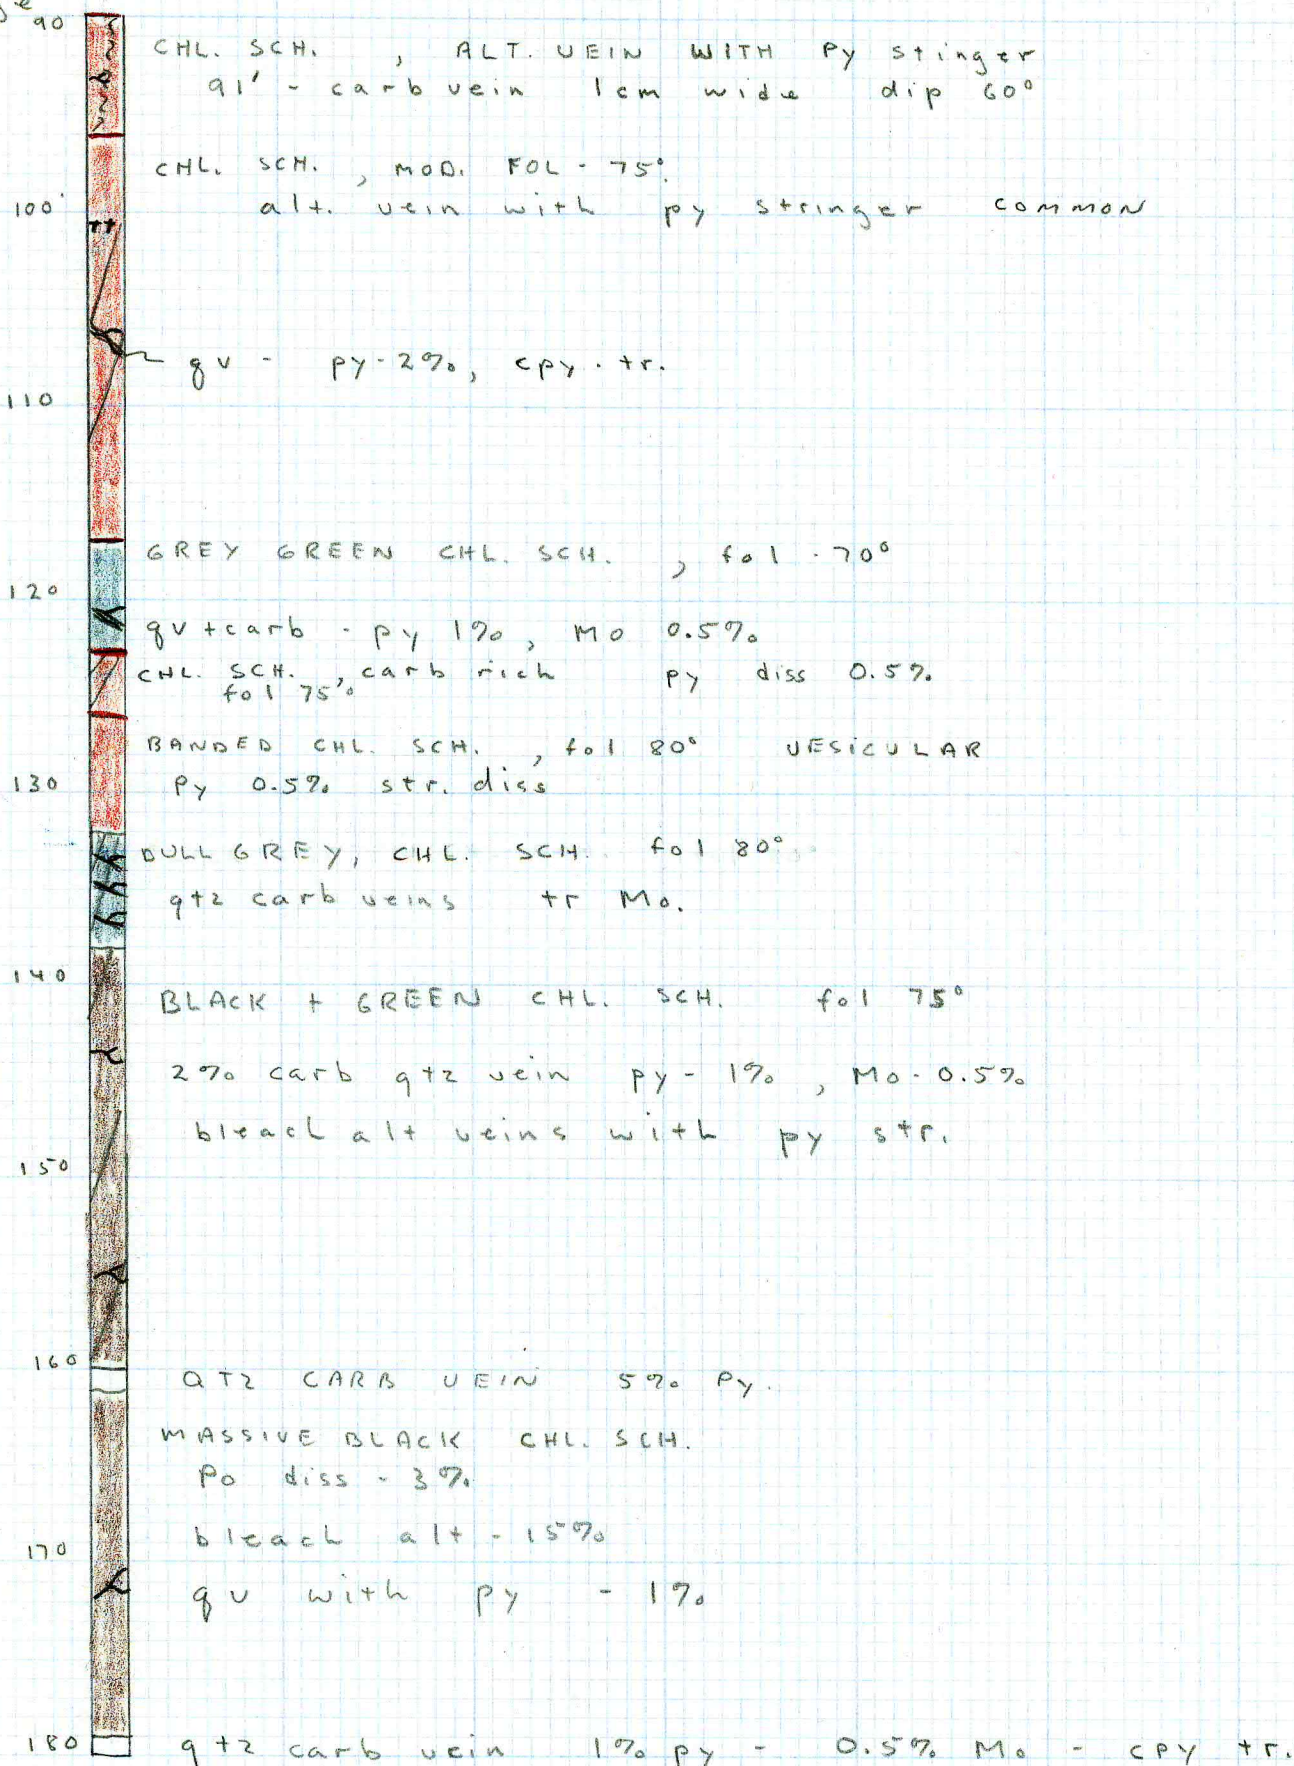 90
CHL. SCH. , ALT. VEIN WITH PY stinger
91' - carb vein 1cm wide dip 60°
CHL. SCH. , MOD. FOL - 75°.
100' alt. vein with py stringer COMMON
qv - py - 2%, cpy - tr.
110
GREY GREEN CHL. SCH. , fol - 70°
120
qv + carb - py 1%, Mo 0.5%
CHL. SCH. , carb rich py diss 0.5%
fol 75°
BANDED CHL. SCH. , fol 80° VESICULAR
130 Py 0.5% str. diss
DULL GREY, CHL. SCH. fol 80°
qtz carb veins tr Mo.
140
BLACK + GREEN CHL. SCH. fol 75°
2% carb qtz vein py - 1% , Mo - 0.5%
bleach alt veins with py str.
150
160
QTZ CARB VEIN 5% Py.
MASSIVE BLACK CHL. SCH.
Po diss - 3%
bleach alt - 15%
170
qv with py - 1%
180 qtz carb vein 1% py - 0.5% Mo - cpy tr.